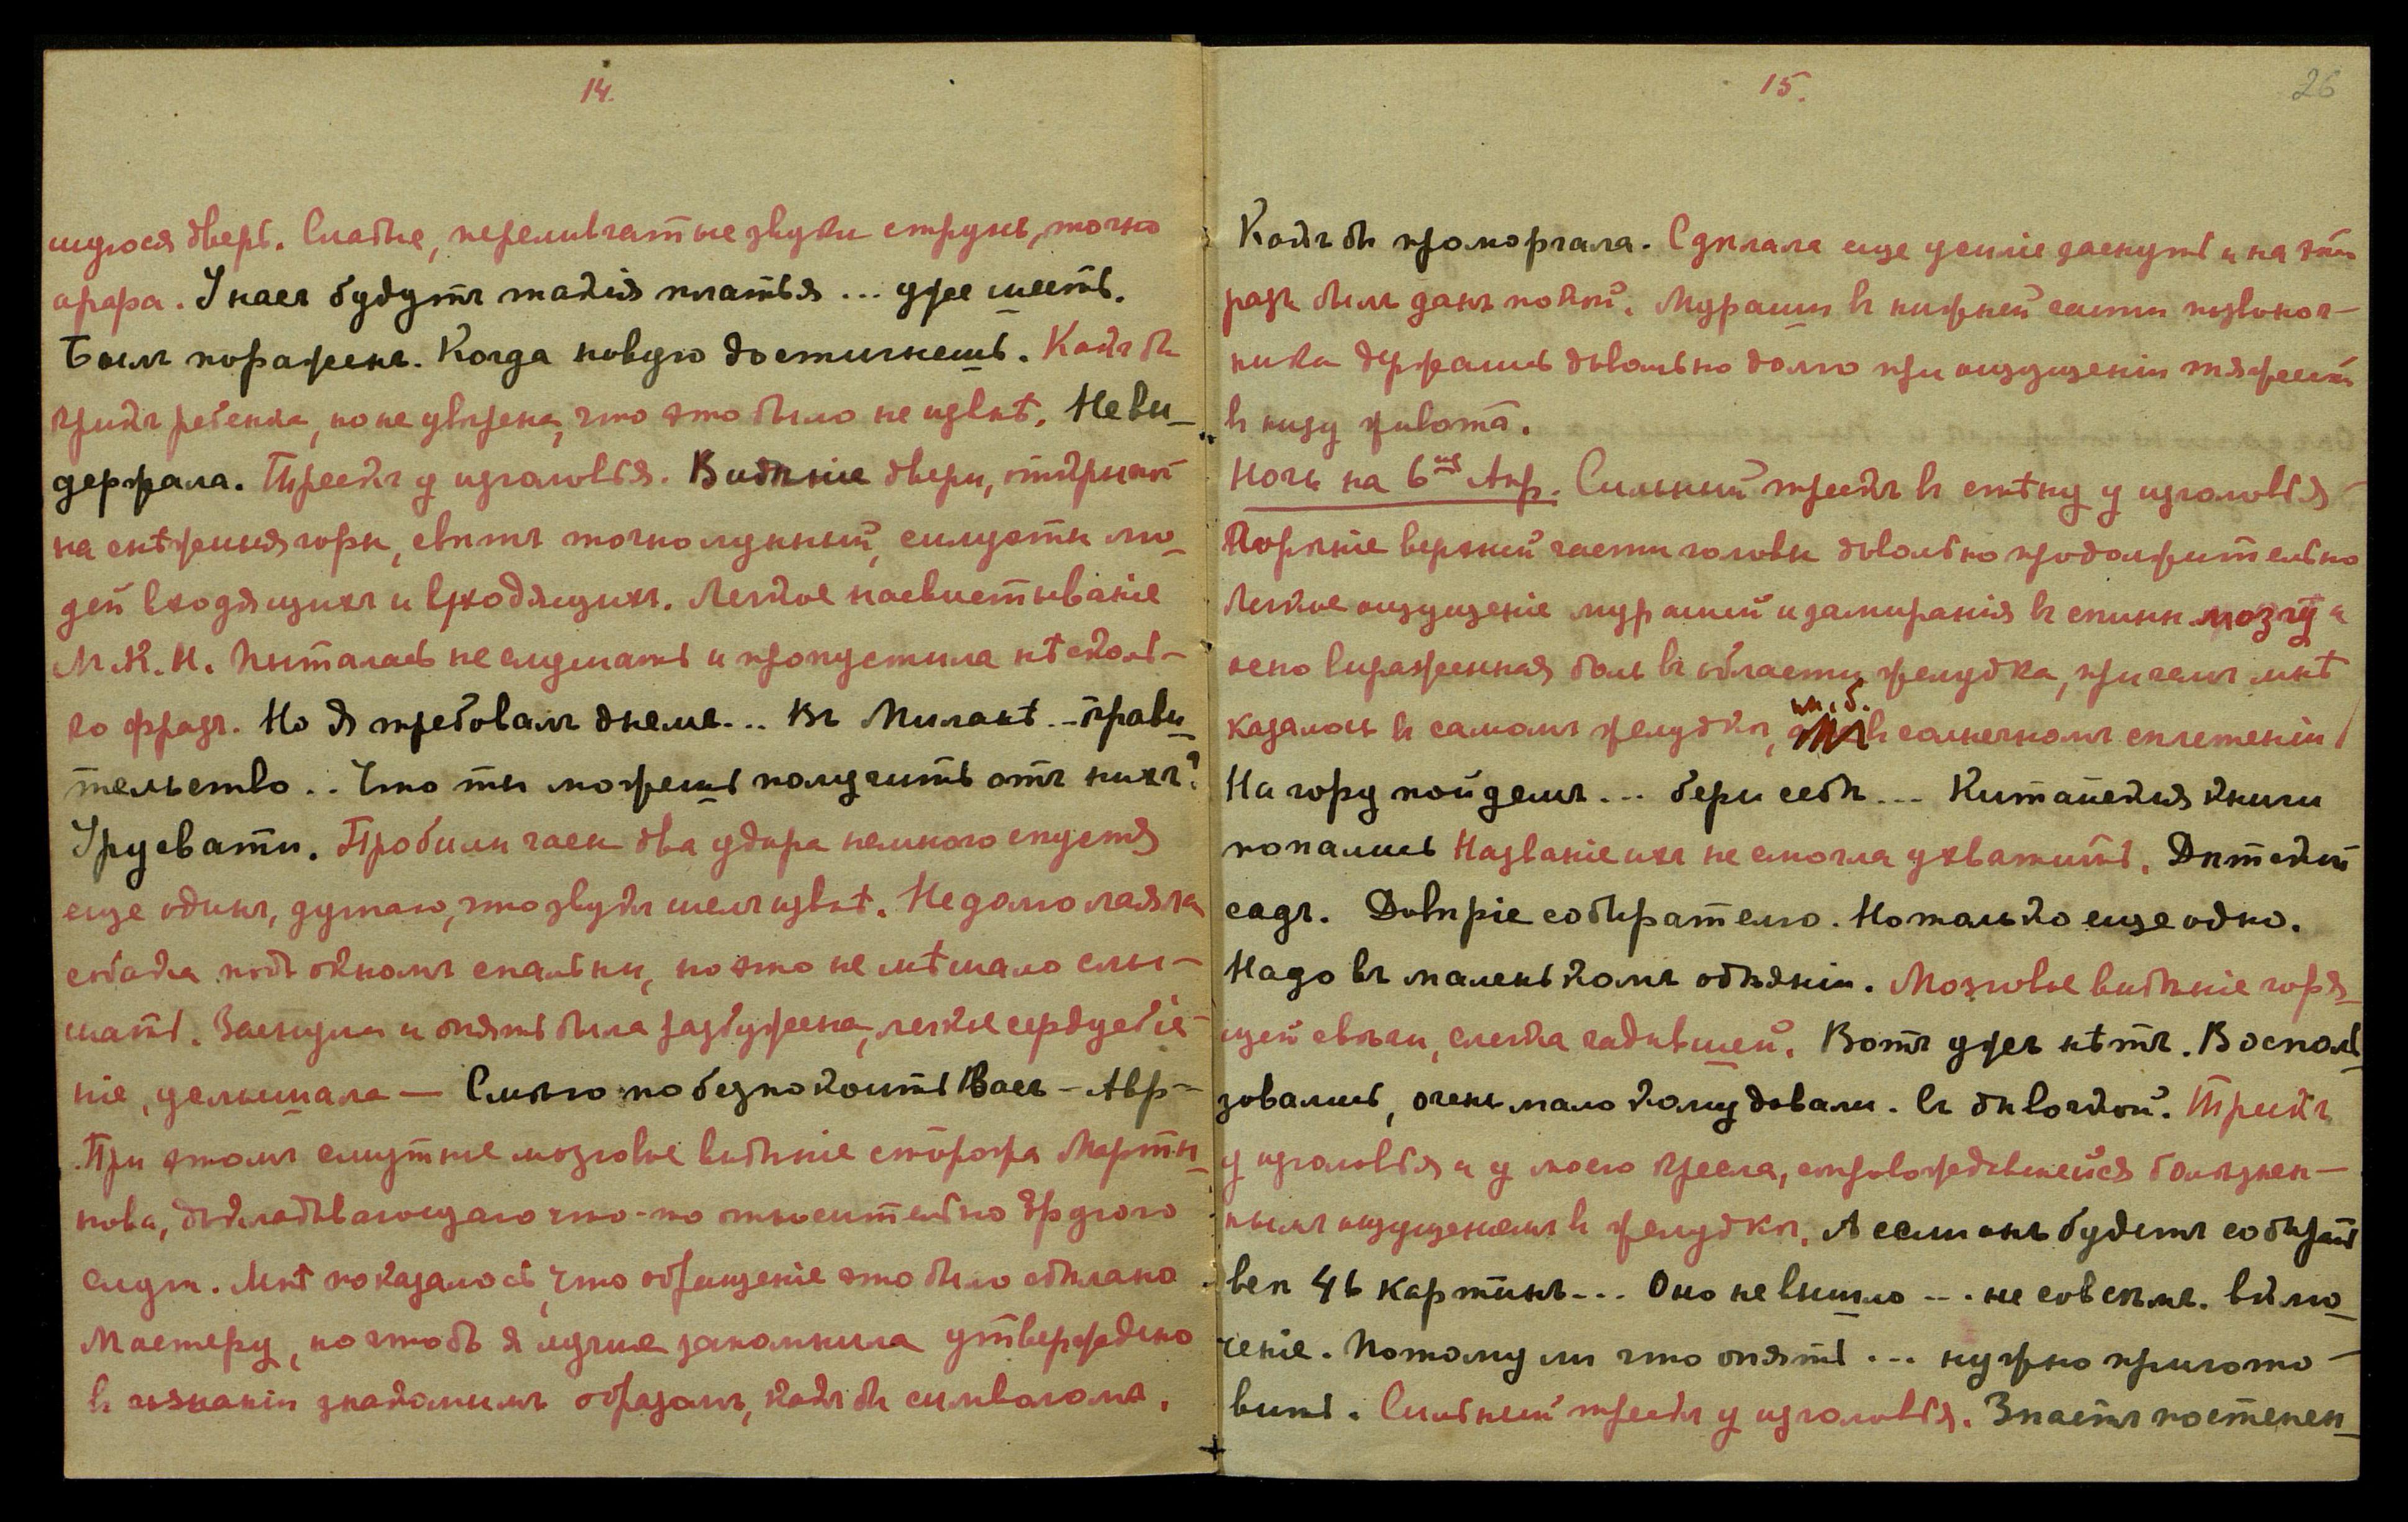 14.
щуюся дверь. Слабые, переливчатые звуки струнъ, точно
арфа. У насъ будутъ такія платья... уже шесть.
Былъ пораженъ. Когда новую достигнешь. Какъ бы
крикъ ребенка, но не уверена, что это было не извнѣ. Не вы-
держала. Трескъ у изголовья. Видѣніе двери, открытой
на снѣжныя горы, свѣтъ точно лунный, силуэты лю-
дей входящихъ и входящихъ. Легкое насвистываніе
М.К.Н. Пыталась не слушать и пропустила нѣсколь-
ко фразъ. Но я требовалъ днемъ... Въ Миланѣ.. -прави-
тельство.. Что ты можешь получить отъ нихъ?
Урусвати. Пробили часы два удара немного спустя
еще одинъ, думаю, что звукъ шелъ извнѣ. Недолго лаяла
собака подъ окномъ спальни, но это не мѣшало слы-
шать. Заснула и опять была разбужена, легкое сердцебіе-
ніе, услышала — Смѣю побезпокоить Васъ - Авр-
При этомъ смутное мозговое видѣніе сторожа Марты-
нова, докладывающаго что-то относительно
Мнѣ показалось, что обращеніе это было сдѣлано
Мастеру, но чтобъ я лучше запомнила утверждено
въ сознаніи знакомымъ образомъ, какъ бы символомъ.
15.
26
Какъ бы проморгала. Сдѣлала еще усиліе заснуть и на этотъ
разъ былъ данъ покой. Мураши въ нижней части позвоноч-
ника держались довольно долго при ощущеніи тяжести
въ низу живота.
Ночь на 6ое Апр. Сильный трескъ въ стѣну у изголовья
Горѣніе верхней части головы довольно продолжительно
Легкое ощущеніе мурашей и замиранія въ спинн. мозгу и
ясно выраженная боль въ области желудка, при чемъ мнѣ
казалось въ самомъ желудкѣ, м. б. въ солнечномъ сплетеніи
На гору пойдемъ... бери себѣ... Китайскія книги
попались Названіе ихъ не смогла ухватить. Дѣтскій
садъ. Довѣріе собирателю. Но только еще одно.
Надо въ маленькомъ обѣяніи. Мозговое видѣніе горя-
щей свѣчи, слегка чадившей. Вотъ ужъ нѣтъ. Восполь-
зовались, очень мало кому давали. Съ дѣвочкой. Трескъ
у изголовья и у моего кресла, сопровождавшейся болѣзнен-
нымъ ощущеніемъ въ желудкѣ. А если онъ будетъ собирать
всѣ 46 картинъ... Оно не вышло... не совсѣмъ. вклю-
ченіе. Потому ли что опять... нужно пригото-
вить. Сильный трескъ у изголовья. Знаетъ постепен-